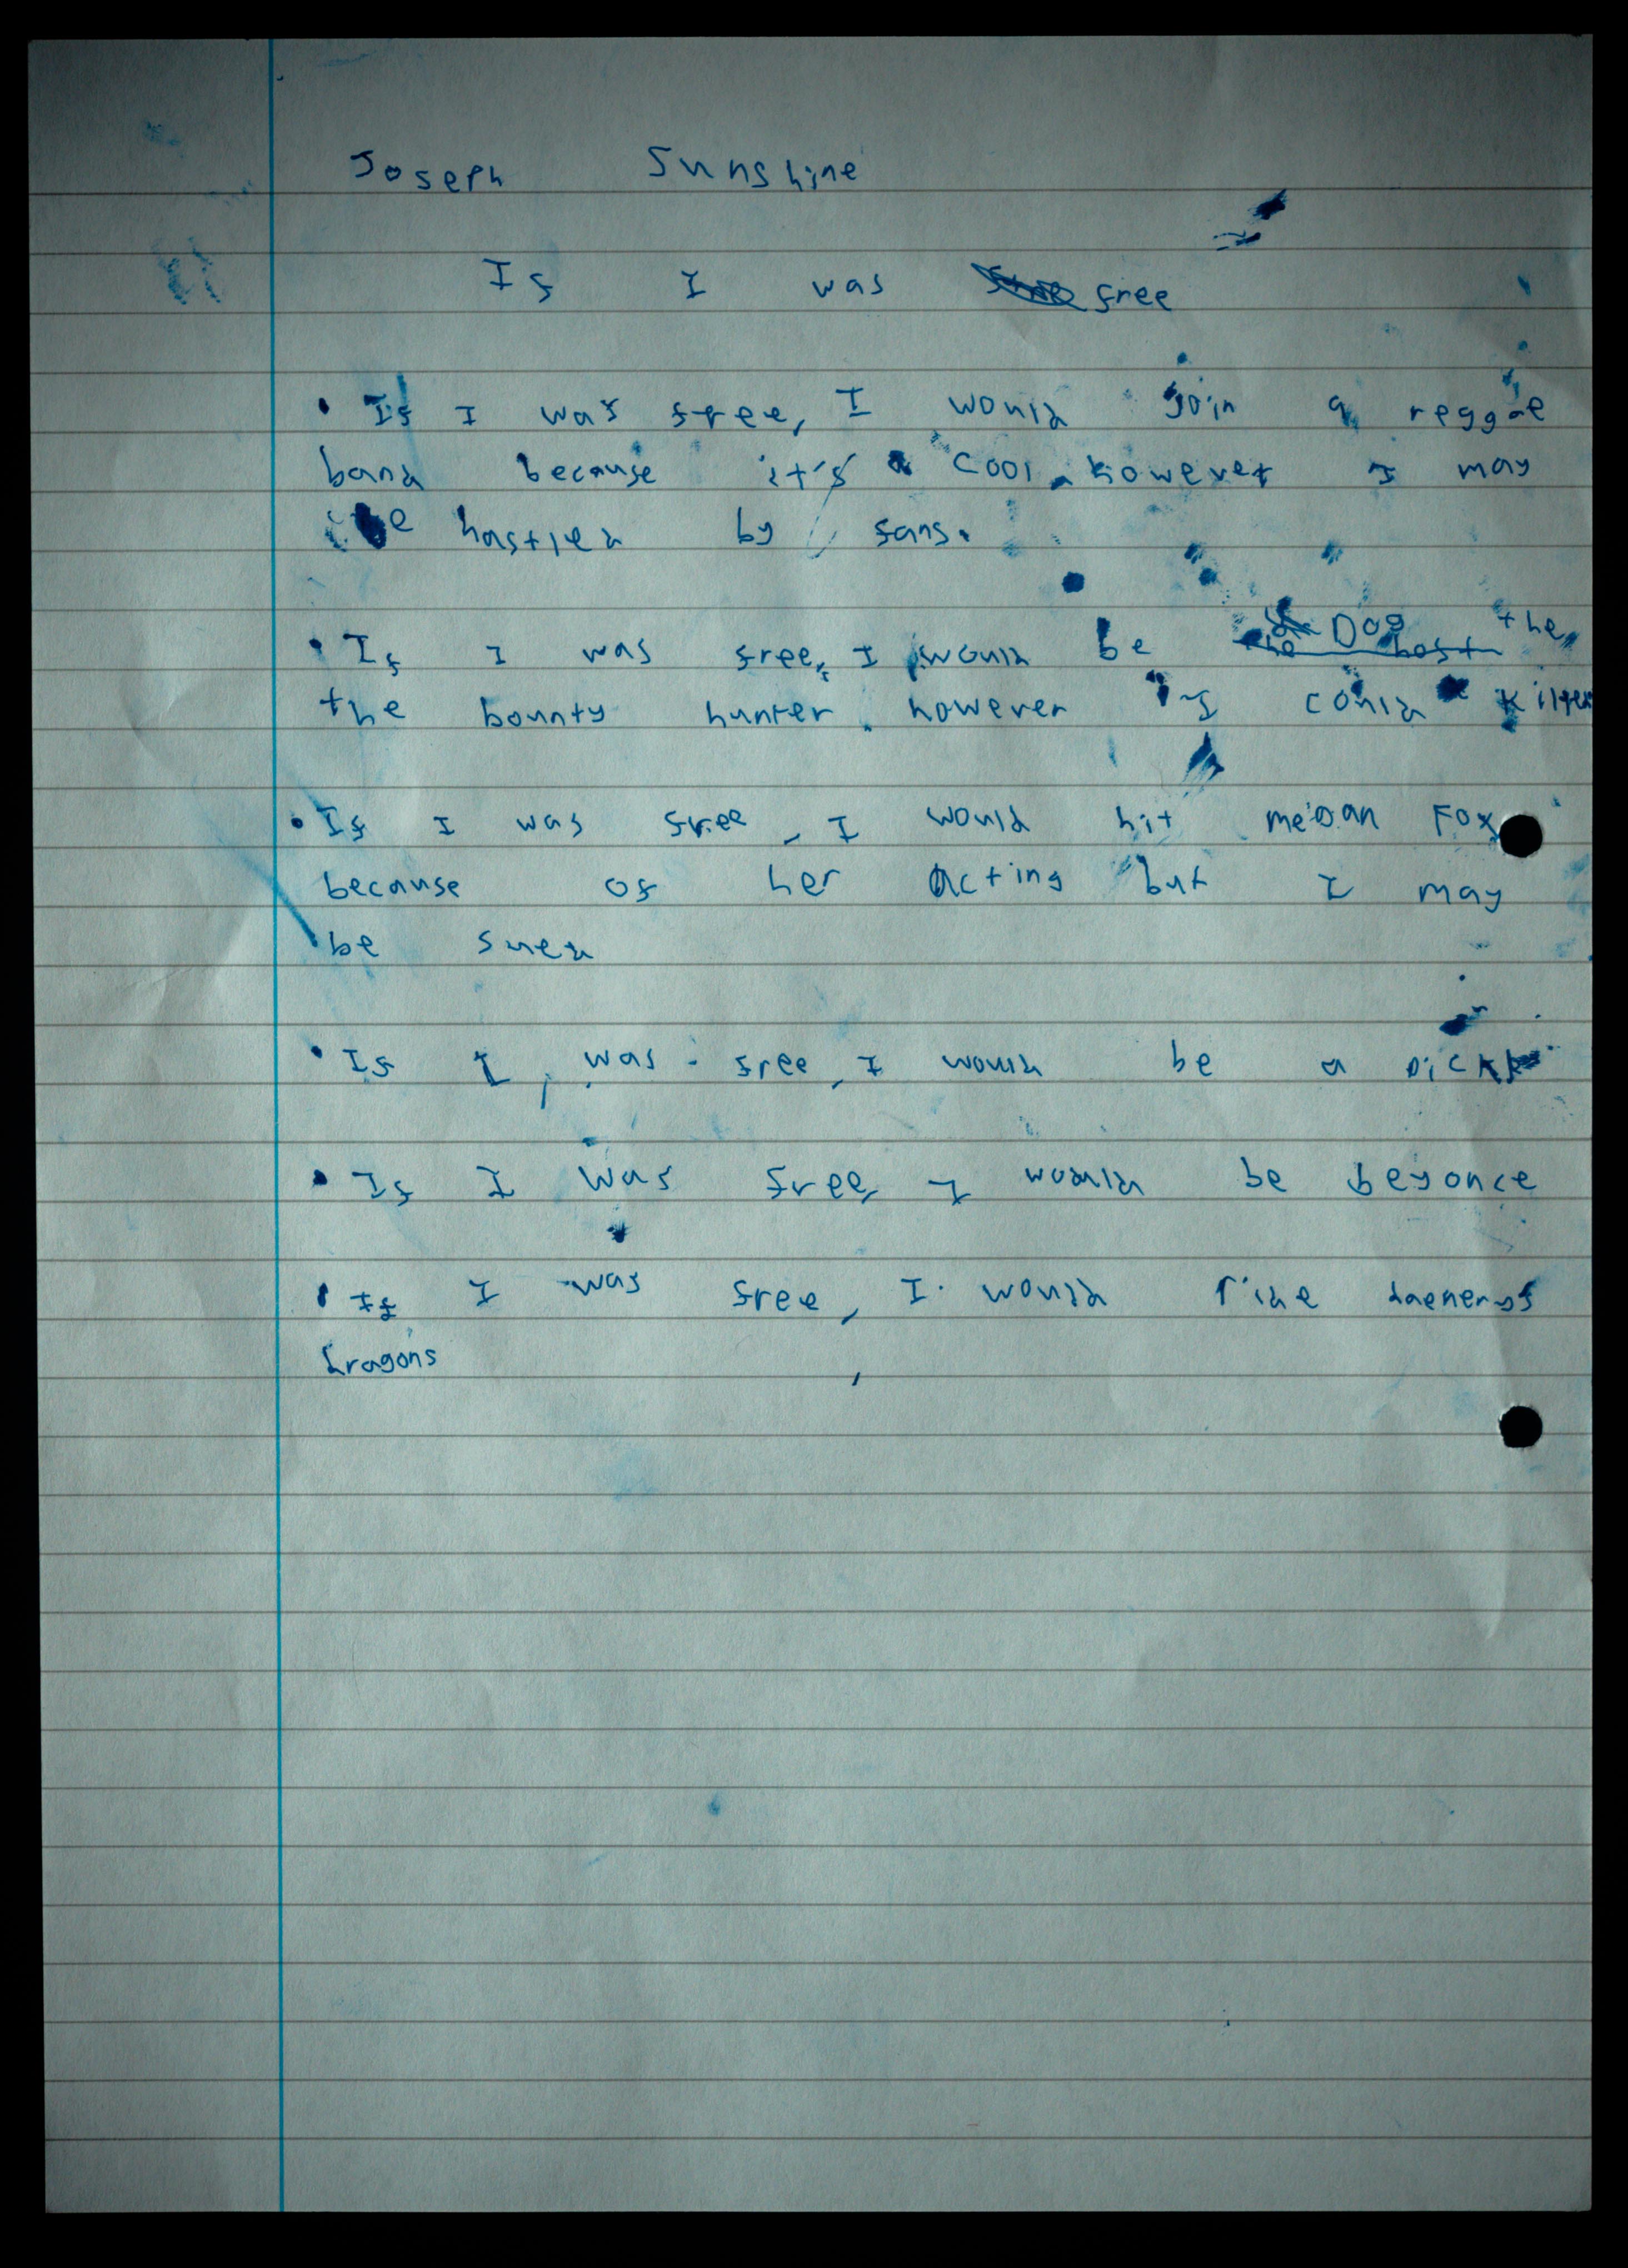 Joseph Sunshine
If I was free
• If I was free, I would join a reggae
band because it's cool. however I may
be hastled by fans.
• If I was free, I would be the Dog the
the bounty hunter. however I could killed
• If I was free, I would hit megan Fox
because of her acting but I may
be sued
• If I was free, I would be a
• If I was free, I would be beyonce
• If I was free, I would ride daenerys
dragons